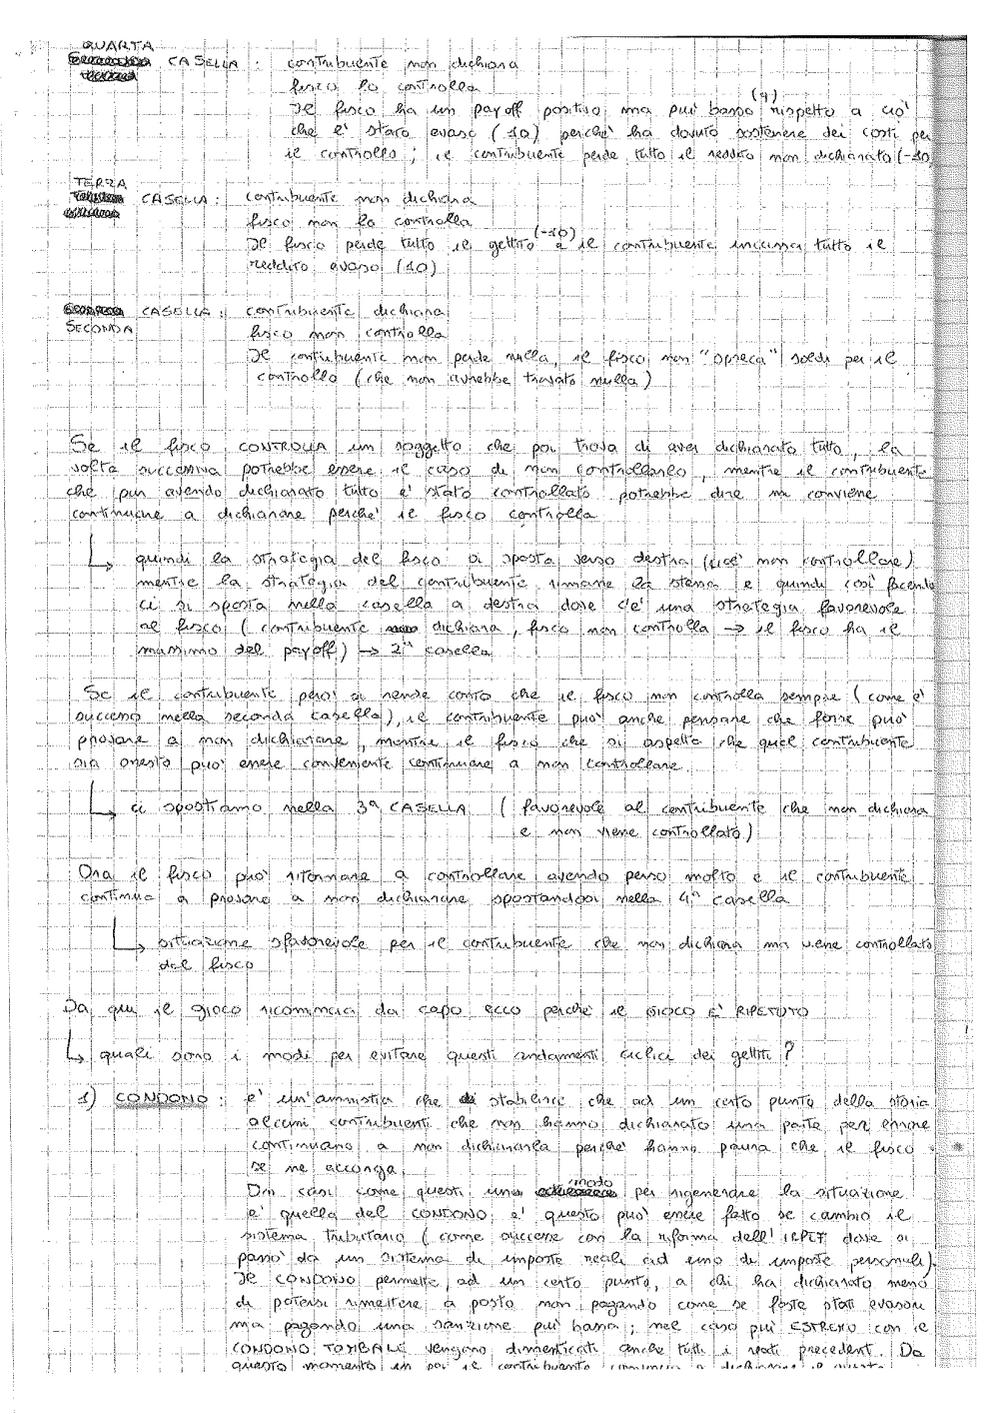 QUARTA
CASELLA : contribuente non dichiara
fisco lo controlla
Il fisco ha un payoff positivo ma più basso (9) rispetto a ciò
che è stato evaso (10) perchè ha dovuto sostenere dei costi per
il controllo ; il contribuente perde tutto il reddito non dichiarato (-10
TERZA
CASELLA : contribuente non dichiara
fisco non lo controlla
Il fisco perde tutto il gettito (-10) e il contribuente incassa tutto il
reddito evaso (10)
CASELLA : contribuente dichiara
SECONDA fisco non controlla
Il contribuente non perde nulla, il fisco non "spreca" soldi per il
controllo (che non avrebbe trovato nulla)
Se il fisco CONTROLLA un soggetto che poi trova di aver dichiarato tutto, la
volta successiva potrebbe essere il caso di non controllarlo, mentre il contribuente
che pur avendo dichiarato tutto è stato controllato potrebbe dire mi conviene
continuare a dichiarare perchè il fisco controlla
quindi la strategia del fisco si sposta verso destra (cioè non controllare)
mentre la strategia del contribuente rimane la stessa e quindi così facendo
ci si sposta nella casella a destra dove c'è una strategia favorevole
al fisco (contribuente dichiara, fisco non controlla → il fisco ha il
massimo del payoff) → 2ª casella
Se il contribuente però si rende conto che il fisco non controlla sempre (come è
successo nella seconda casella), il contribuente può anche pensare che forse può
provare a non dichiarare, mentre il fisco che si aspetta che quel contribuente
sia onesto può essere conveniente continuare a non controllare.
ci spostiamo nella 3ª CASELLA (favorevole al contribuente che non dichiara
e non viene controllato)
Ora il fisco può ritornare a controllare avendo perso molto e il contribuente
continua a provare a non dichiarare spostandosi nella 4ª casella
situazione sfavorevole per il contribuente che non dichiara ma viene controllato
dal fisco
Da qui il gioco ricomincia da capo ecco perchè il GIOCO E' RIPETUTO
quali sono i modi per evitare questi andamenti ciclici dei gettiti ?
1) CONDONO : è un'amnistia che stabilisce che ad un certo punto della storia
alcuni contribuenti che non hanno dichiarato una parte per errore
continuano a non dichiararla perchè hanno paura che il fisco
se ne accorga.
In casi come questi un modo per rigenerare la situazione
è quella del CONDONO e questo può essere fatto se cambio il
sistema tributario (come successe con la riforma dell'IRPEF dove si
passò da un sistema di imposte reale ad uno di imposte personali).
Il CONDONO permette, ad un certo punto, a chi ha dichiarato meno
di potersi rimettere a posto non pagando come se foste stati evasori
ma pagando una sanzione più bassa ; nel caso più ESTREMO con il
CONDONO TOMBALE vengono dimenticati anche tutti i reati precedenti. Da
questo momento in poi il contribuente comincia a dichiarare